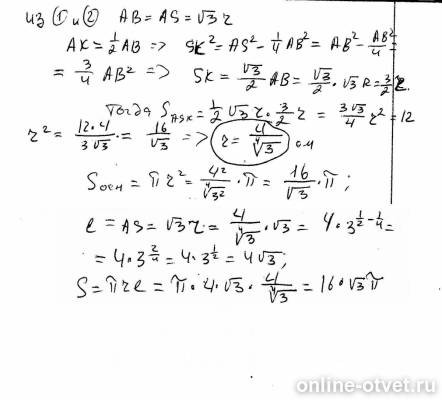 из ① и ② AB = AS = √3 r
AK = 1/2 AB => SK² = AS² - 1/4 AB² = AB² - AB²/4 =
= 3/4 AB² => SK = √3/2 AB = √3/2 · √3 R = 3/2 r.
Тогда S_ASK = 1/2 √3 r · 3/2 r = 3√3/4 r² = 12
r² = 12·4/3√3 · = 16/√3 => r = 4/⁴√3 см
Sосн = π r² = 4²/⁴√3² · π = 16/√3 · π ;
l = AS = √3 r = 4/⁴√3 · √3 = 4 · 3^(1/2 - 1/4) =
= 4 · 3^(2/4) = 4 · 3^(1/2) = 4√3 ;
S = π r l = π · 4 · √3 · 4/⁴√3 = 16 · √3 π
online-otvet.ru